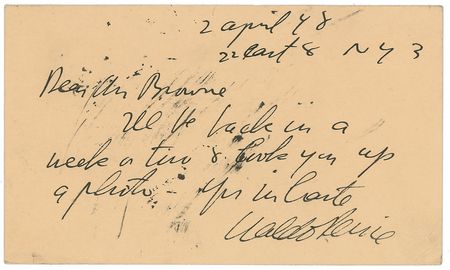 2 april 48
22 East 8 N Y 3
Dear Mr Browne
I'll be back in a
week or two & look you up
a photo – yrs in haste
Waldo Peirce